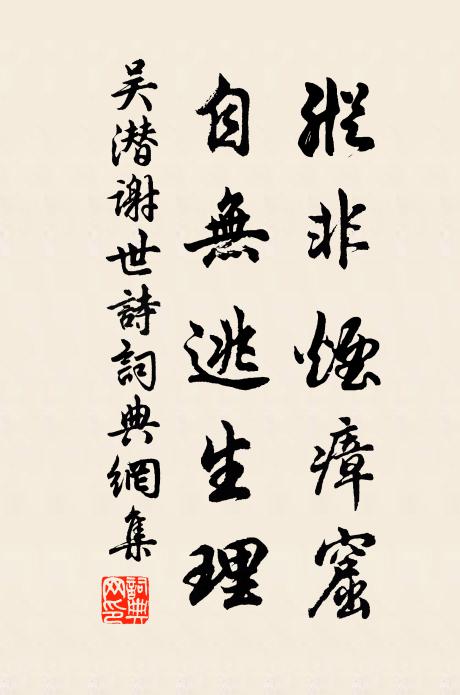 縱非煙瘴窟
自無逃生理
吴潜謝世詩詞典網集